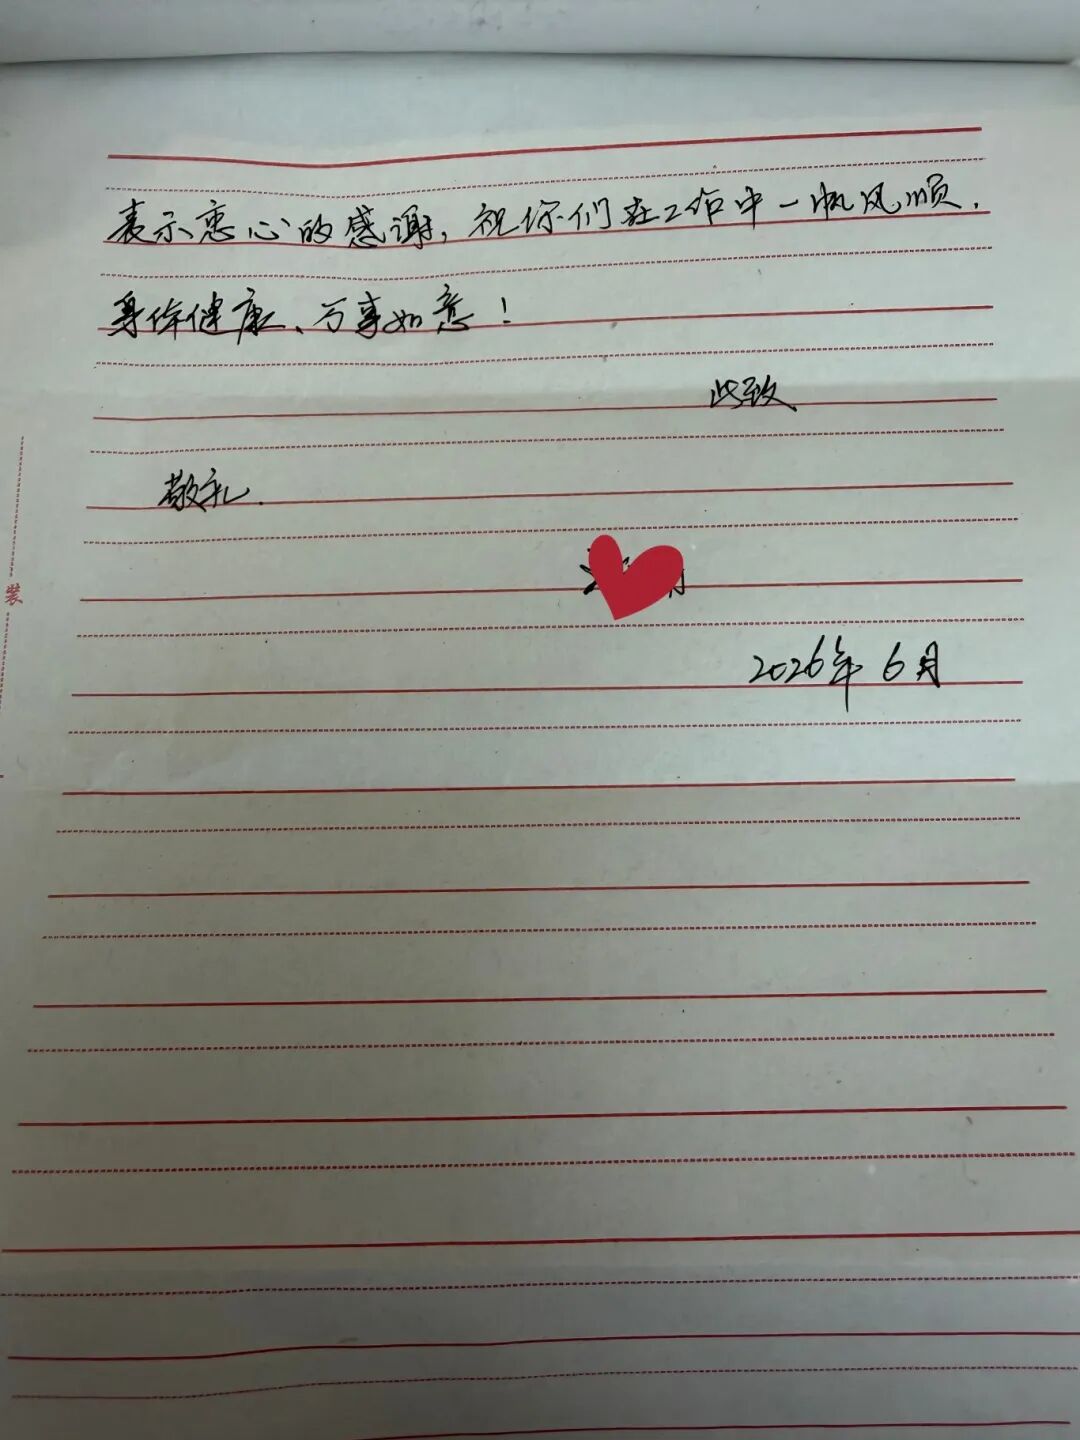 表示衷心的感谢，祝你们在工作中一帆风顺，
身体健康、万事如意！
此致
敬礼.
2026年6月
装